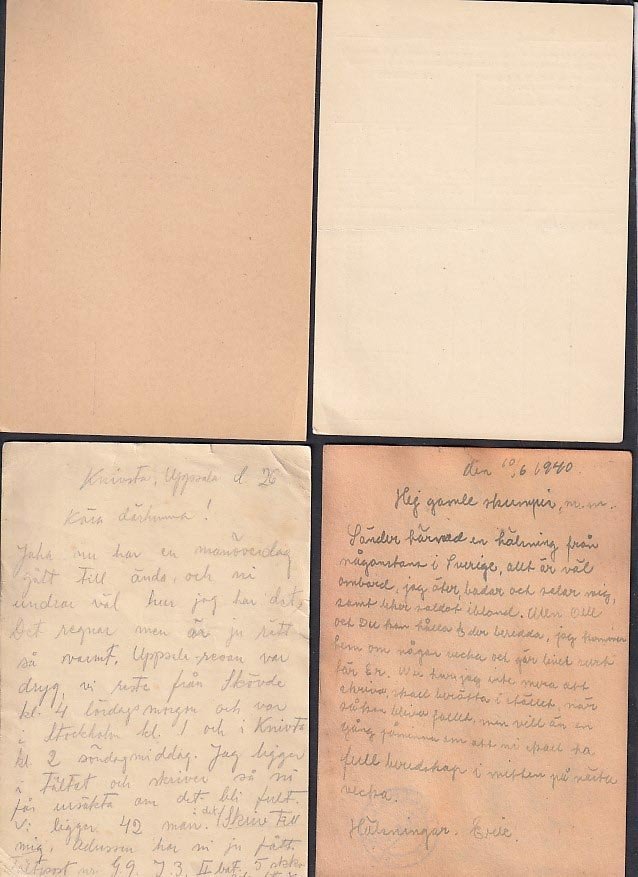 Knivsta, Uppsala d 26
Kära därhemma!
Jaha nu har en manöverdag
gått till ända, och ni
undrar väl hur jag har det.
Det regnar men är ju rätt
så varmt. Uppsala-resan var
dryg, vi reste från Skövde
kl. 4 lördagsmorgon och var
i Stockholm kl. 1 och i Knivsta
kl. 2 söndagmiddag. Jag ligger
i tältat och skriver så ni
får ursäkta om det bli fult.
Vi ligger 42 man. Skriv till
mig, adressen har ni ju fått.
Fältpost nr G.9. I 3, II bat. 5
den 10/6 1940.
Hej gamle skumpis, m.m.
Sänder härmed en hälsning från
någonstans i Sverige, allt är väl
ombord, jag äter, badar och solar mig,
samt leker soldat ibland. Men
och Du kan hålla Er beredda, jag kommer
hem om några vecka och gör livet surt
för Er. Nu kan jag inte mera att
skriva, skall berätta i stället, när
jag
gång påminna om att ni skall ha
full beredskap i mitten på nästa
vecka.
Hälsningar.